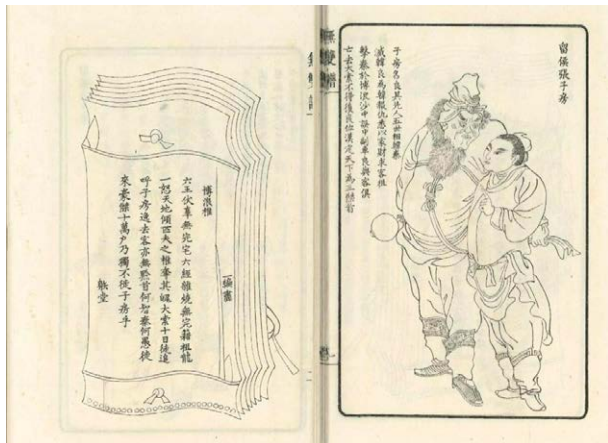 留侯張子房
子房名良其先人五世相韓秦
滅韓良為韓報仇悉以家財求客狙
擊秦於博浪沙中誤中副車良與客俱
亡去大索不得後良佐漢定天下為三傑首
無雙譜
一編書
博浪椎
六王伏辜無完宅六經雖燒無完籍祖龍
一怒天地傾匹夫之椎奪其魄大索十日徒追
呼子房逸去客亦無黔首何智秦何愚徙
來豪傑十萬戶乃獨不徙子房乎
堂